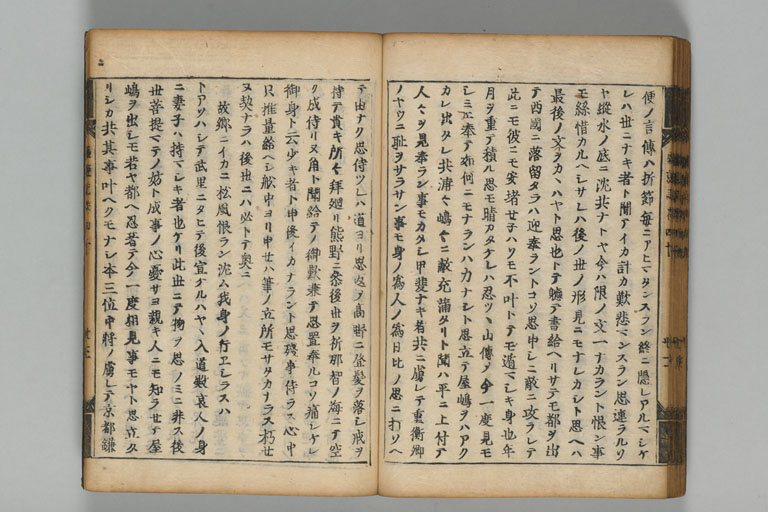 便ノ言傳ハ折節毎ニアヒマタンスラン終ニ隠レアルマシケ
レハ世ニナキ者ト聞アイカ計カ歎悲マンスラン思連ラルソ
ヤ縦水ノ底ニ沈共ナトヤ今ハ限ノ文一ナカラント恨シ事
モ糸惜カルヘシサレハ後ノ世ノ形見ニモナレカシト思ヘハ
最後ノ文ヲカハヤト思也トテ軈テ書給ヘリサテモ都ヲ出
テ西國ニ落留タラハ迎奉ラントコソ思申シニ敵ニ攻ラレテ
此ニモ彼ニモ安堵セ子ハソモ不叶トテモ遁マシキ身也年
月ヲ重テ積ル思モ晴カタケレハ忍ツヽ山傳ヲ今一度見モ
シミエ奉テ如何ニモナランハ力ナシト思立テ屋嶋ヲハアク
カレ出タレ共浦々嶋々ニ敵充満タリト聞ハ平ニ上付テ
人々ヲ見奉ラン事モカタシ甲斐ナキ者共ニ虜レテ重衡卿
ノヤウニ恥ヲサラサン事モ身ノ為人ノ為日比ノ思ニ打ソヘ
テ由ナク思侍ツレハ道ヨリ思返メ高野ニ登髪ヲ落シ戒ヲ
持テ貴キ所々拜廻リ熊野ニ参後世ヲ祈那智ノ海ニテ空
ク成侍リヌ角ト聞給テノ御歎兼テ思置奉ルコソ痛シケレ
御身ト云少キ者ト申後イカナラント思残事侍ラス心中
只推量給ヘシ舩中ヨリ申セハ筆ノ立所モサタカナラス朽セ
ヌ契ナラハ後世ニハ必トテ奥ニ
故郷ニイカニ松風恨ラン沈ム我身ノ行エシラスハ
トアソハシテ武里ニタヒテ後宣ケルハヤヽ入道殿哀人ノ身
ニ妻子ハ持マシキ者也ケリ此世ニテ物ヲ思ノミニ非ス後
世菩提マテノ妨ト成事ノ心憂サヨ親キ人ニモ知ラセテ屋
嶋ヲ出シモ若ヤ都ヘ忍着テ今一度相見事モヤト思立タ
リシカ共其事叶ヘクモナシ本三位中将ノ虜レテ京都鎌